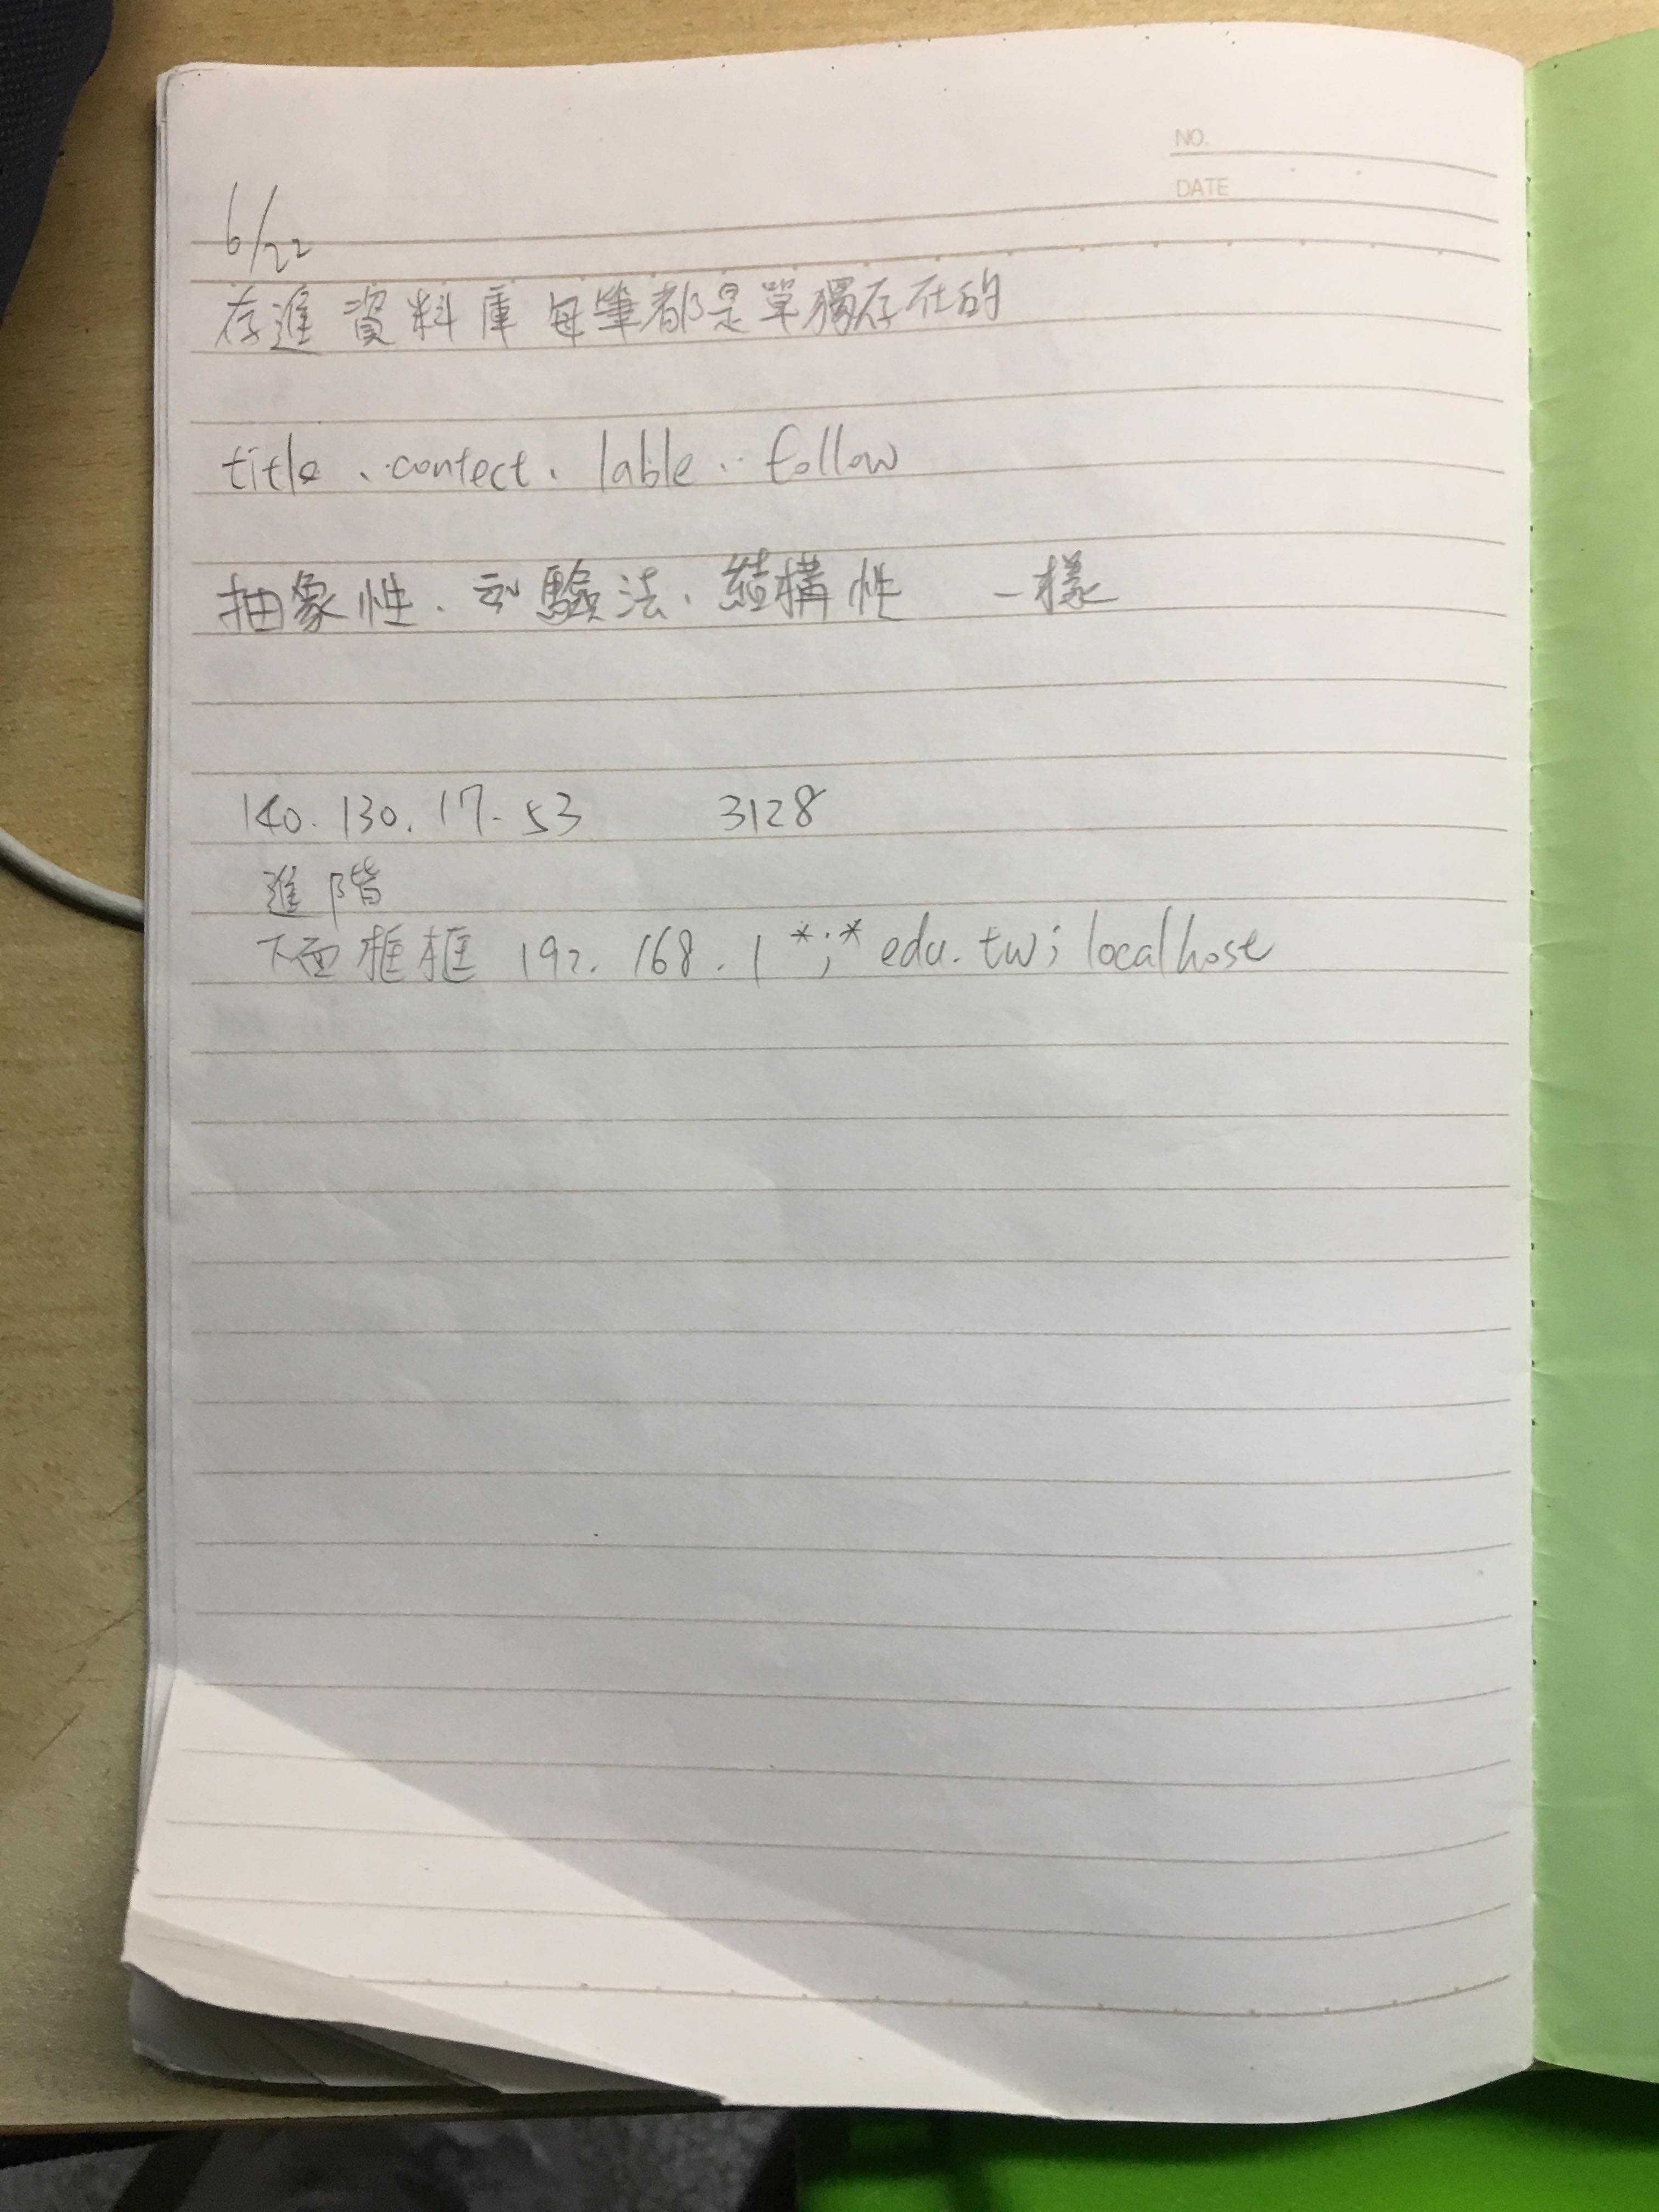 NO.
DATE
6/22
存進資料庫每筆都是單獨存在的
title、content、lable、follow
抽象性、實驗法、結構性 一樣
140.130.17.53 3128
進階
下面框框 192.168.1*;*edu.tw;localhost